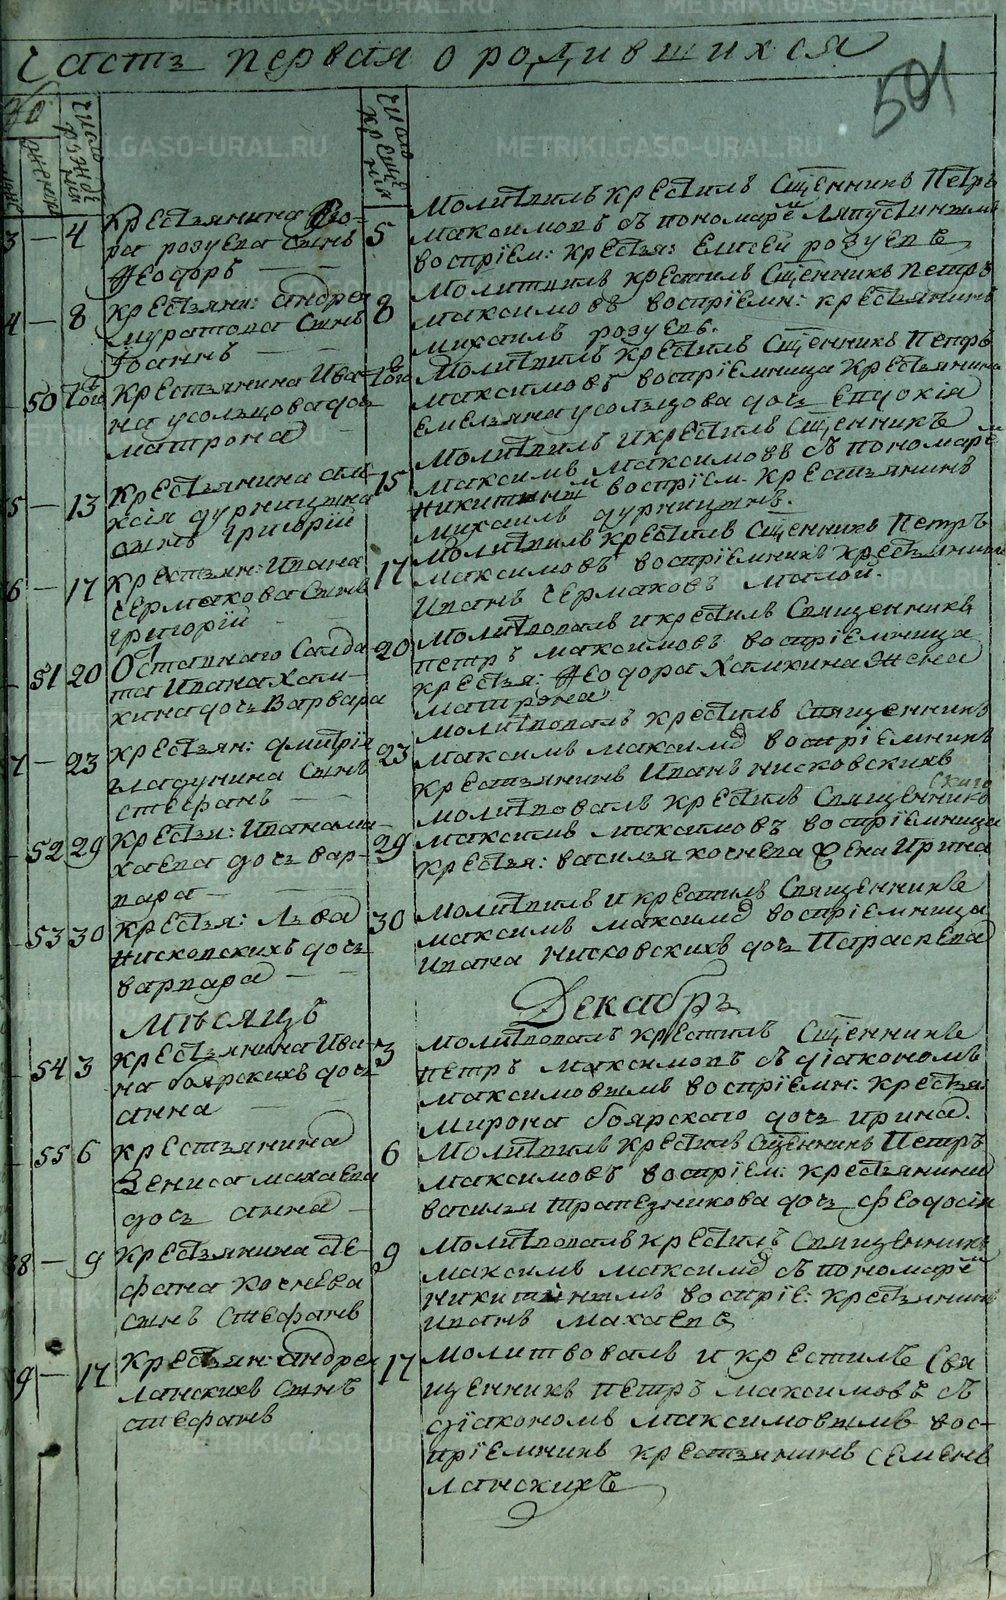 Часть первая о родившихся
501
Число рождения
Число крещения
3 — 4
Крестьянина
ра розуева сынъ
Ѳеодоръ
5
Молитвилъ крестилъ Сщенникъ Петръ
максимовъ съ пономарем Ляпустинымъ
воспрїем: крестья: Елисей розуевъ
4 — 8
крестьяни: андрея
муратова сынъ
Іоаннъ
8
Молитвилъ крестилъ Сщенникъ петръ
максимовъ воспрїемн: крестьянинъ
михаилъ розуевъ.
50 Того
крестьянина Ива-
на усольцова дочь
матрона
Того
Молитвилъ крестилъ Сщенникъ Петръ
максимовъ воспрїемница крестьянина
Емельяна усольцова дочь Евдокія
5 — 13
крестьянина але-
ксія дурницына
сынъ григорій
15
Молитвилъ и крестилъ Сщенникъ
максимъ максимовъ съ пономарем
никитинымъ воспрїем. крестьянинъ
михаилъ дурницынъ.
6 — 17
крестьян: Ивана
чермакова сынъ
григорій
17
Молитвилъ крестилъ Сщенникъ Петръ
максимовъ воспрїемникъ крестьянинъ
Иванъ чермаковъ малой.
51 20
Отставнаго Салда
та Ивана Халм-
кина дочь Варвара
20
Молитвовалъ и крестилъ Священникъ
петръ максимовъ воспрїемница
крестья: Ѳеодора Халмкина жена
матрона
7 — 23
крестьян: дмитрїя
гладунина сынъ
стефанъ
23
Молитвовалъ крестилъ Священникъ
максимъ максимо воспрїемникъ
крестьянинъ Иванъ нисковскихъ
52 29
крестья: Ивана ма-
хаева дочь вар-
вара
29
молитвовалъ крестилъ Священникъ
максимъ максимовъ воспрїемница
крестья: василья кочнева жена Ирина
53 30
крестья: Льва
нисковскихъ дочь
варвара
30
Молитвилъ и крестилъ Священникъ
максимъ максимо воспрїемница
ивана нисковскихъ дочь Параскева
Мѣсяцъ Декабрь
54 3
крестьянина Ива-
на боярскихъ дочь
анна
3
Молитвовалъ крестилъ Сщенникъ
петръ максимовъ съ діакономъ
максимовымъ воспрїемн: крестья:
мирона боярскаго дочь ирина.
55 6
крестьянина
Дениса махаева
дочь анна
6
Молитвилъ крестилъ Сщенникъ Петръ
максимовъ воспрїем: крестьянина
василья трапезникова дочь феодосія
38 — 9
крестьянина сте-
фана кочнева
сынъ стефанъ
9
Молитвовалъ крестилъ Священникъ
максимъ максимо съ пономарем
никитинымъ воспрїе: крестьянинъ
иванъ махаевъ
39 — 17
крестьян: андрея
ланскихъ сынъ
стефанъ
17
молитвовалъ и крестилъ Свя
щенникъ петръ максимовъ съ
діакономъ максимовымъ вос-
прїемникъ крестьянинъ семенъ
ланскихъ